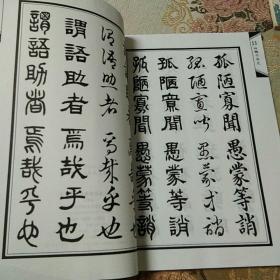 孤陋寡聞 愚蒙等誚
孤陋寡聞 愚蒙等誚
孤陋寡聞 愚蒙等誚
孤陋寡聞 愚蒙等誚
謂語助者 焉哉乎也
謂語助者 焉哉乎也
謂語助者 焉哉乎也